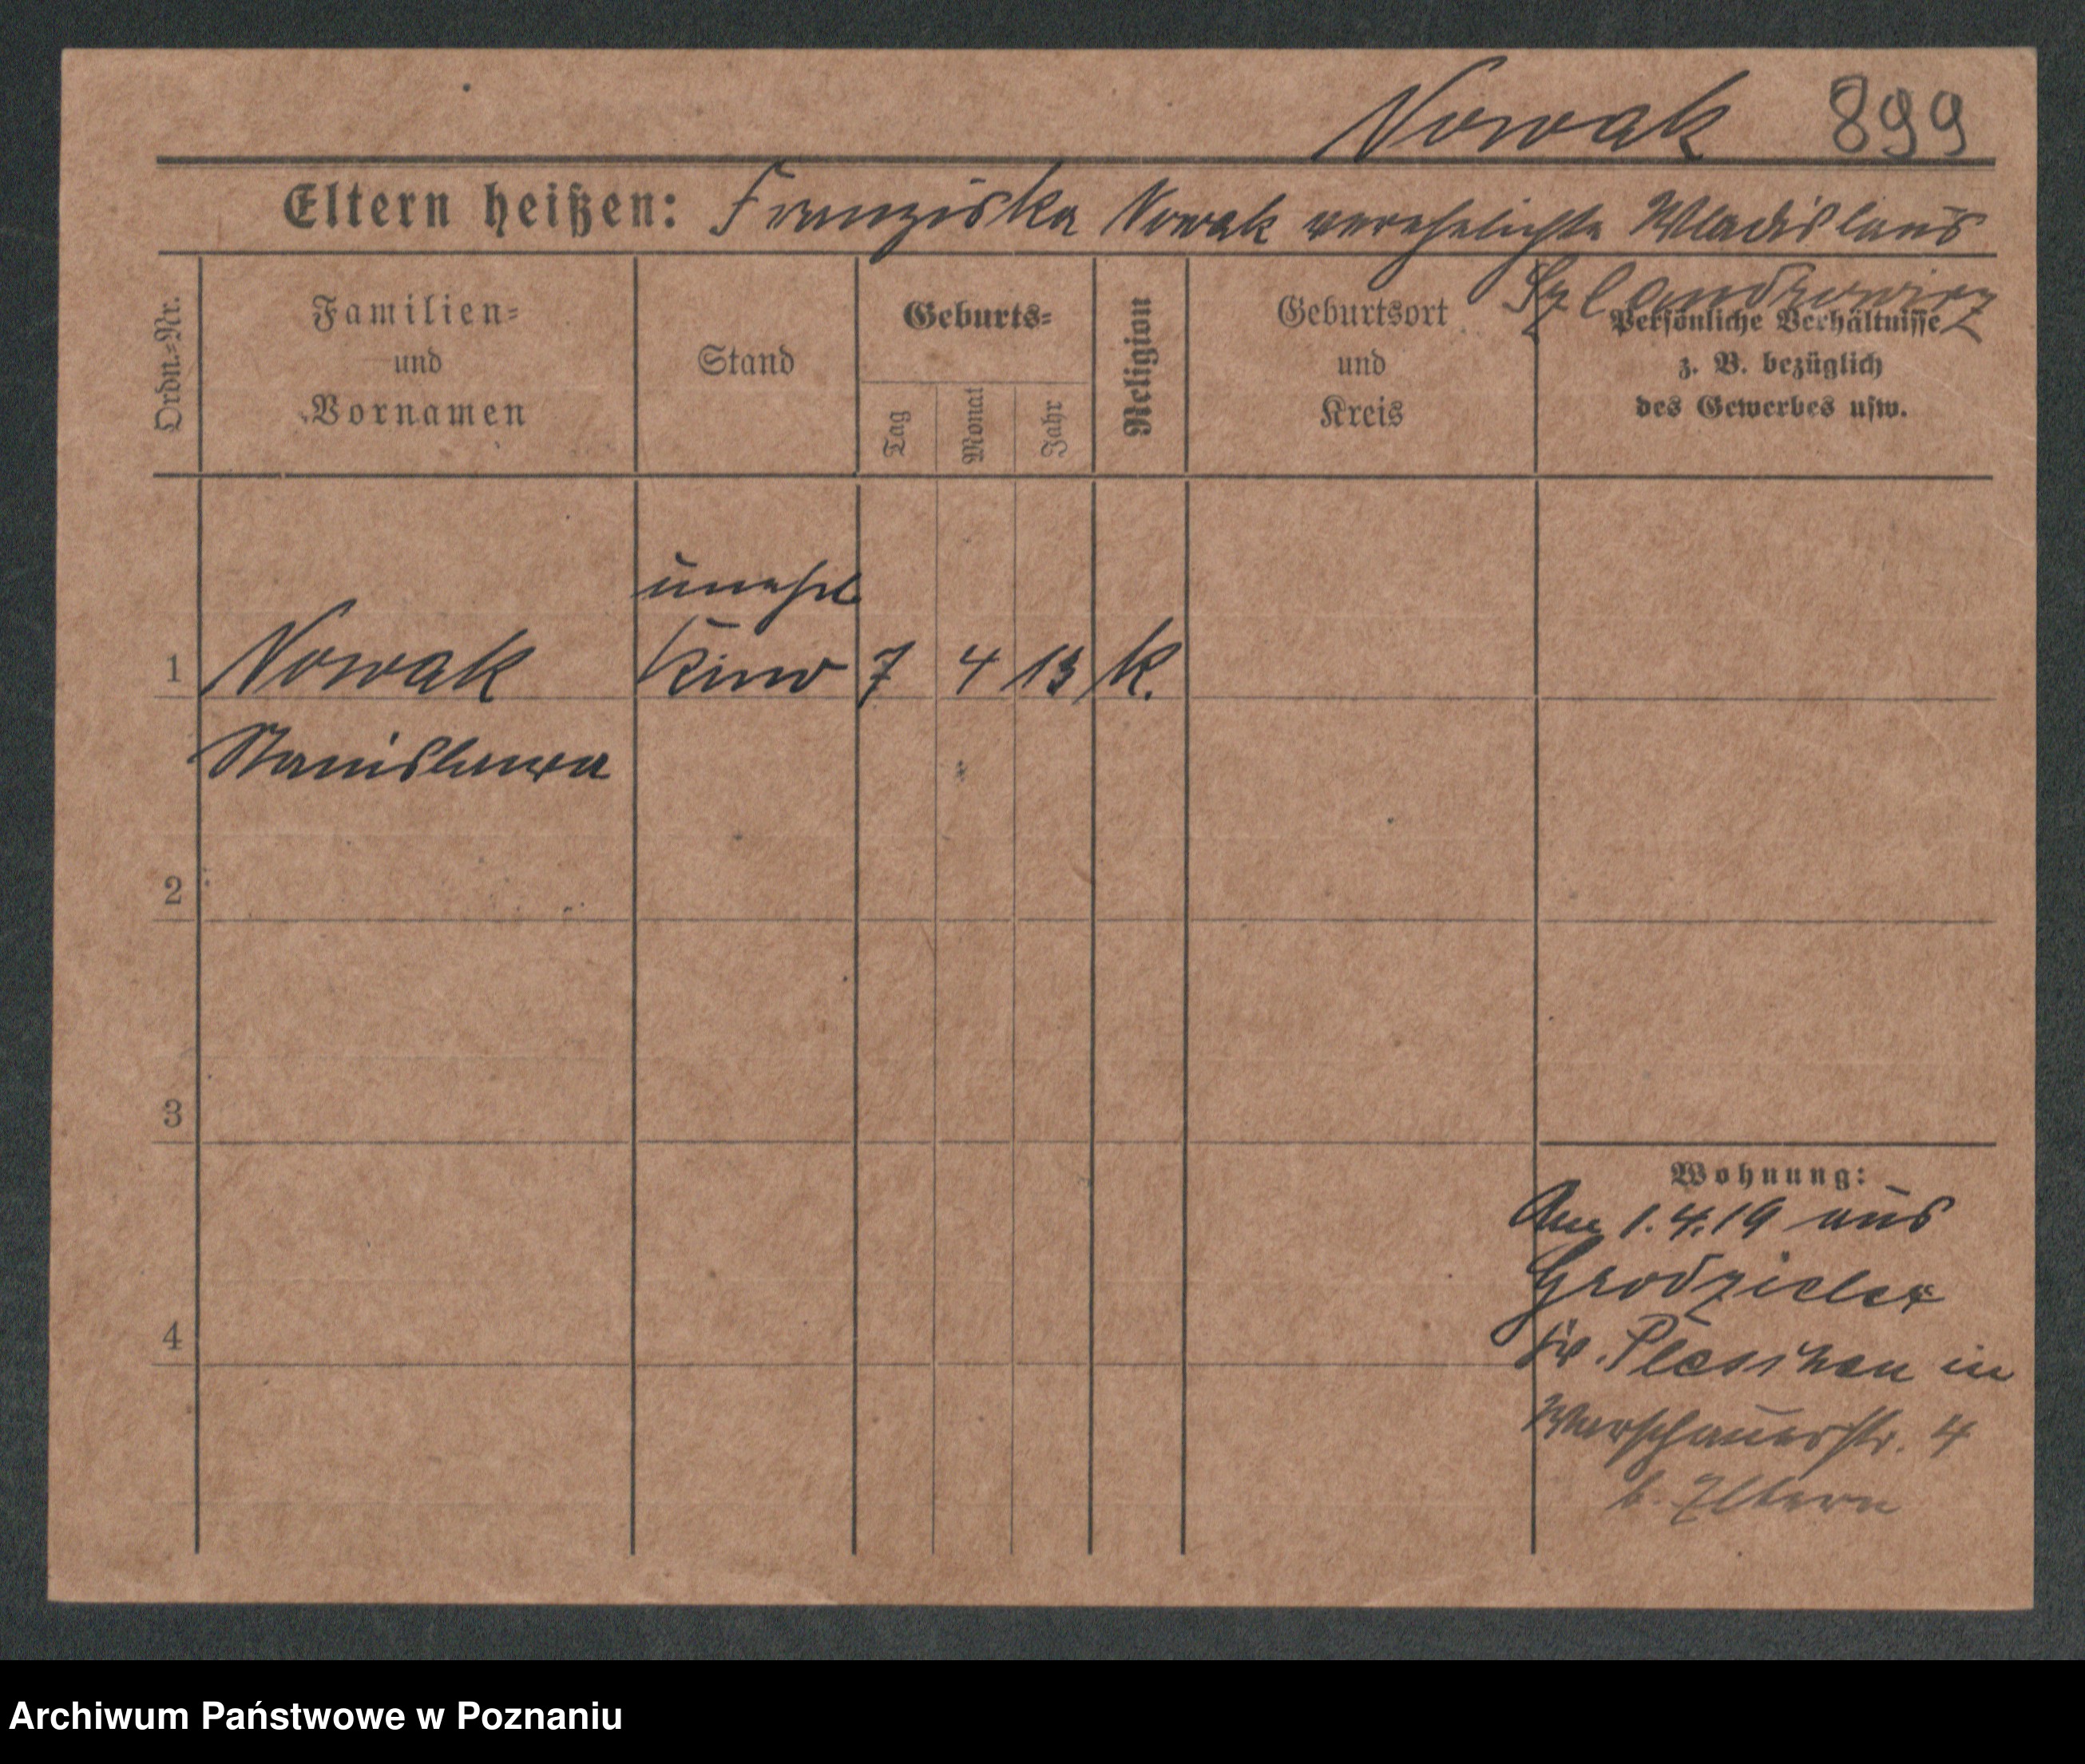 Nowak 899
Eltern heißen: Franziska Nowak verehelichte Wladislaus
Szlandrowicz
Ordn.-Nr.
Familien-
und
Vornamen
Stand
Geburts-
Tag
Monat
Jahr
Religion
Geburtsort
und
Kreis
Persönliche Verhältnisse
z. B. bezüglich
des Gewerbes usw.
unehl
1 Nowak Kind 7 4 13 K.
Stanislawa
2
3
4
Wohnung:
Am 1.4.19 aus
Grodzisko
Kr. Pleschen in
Warschauerstr. 4
b. Eltern
Archiwum Państwowe w Poznaniu